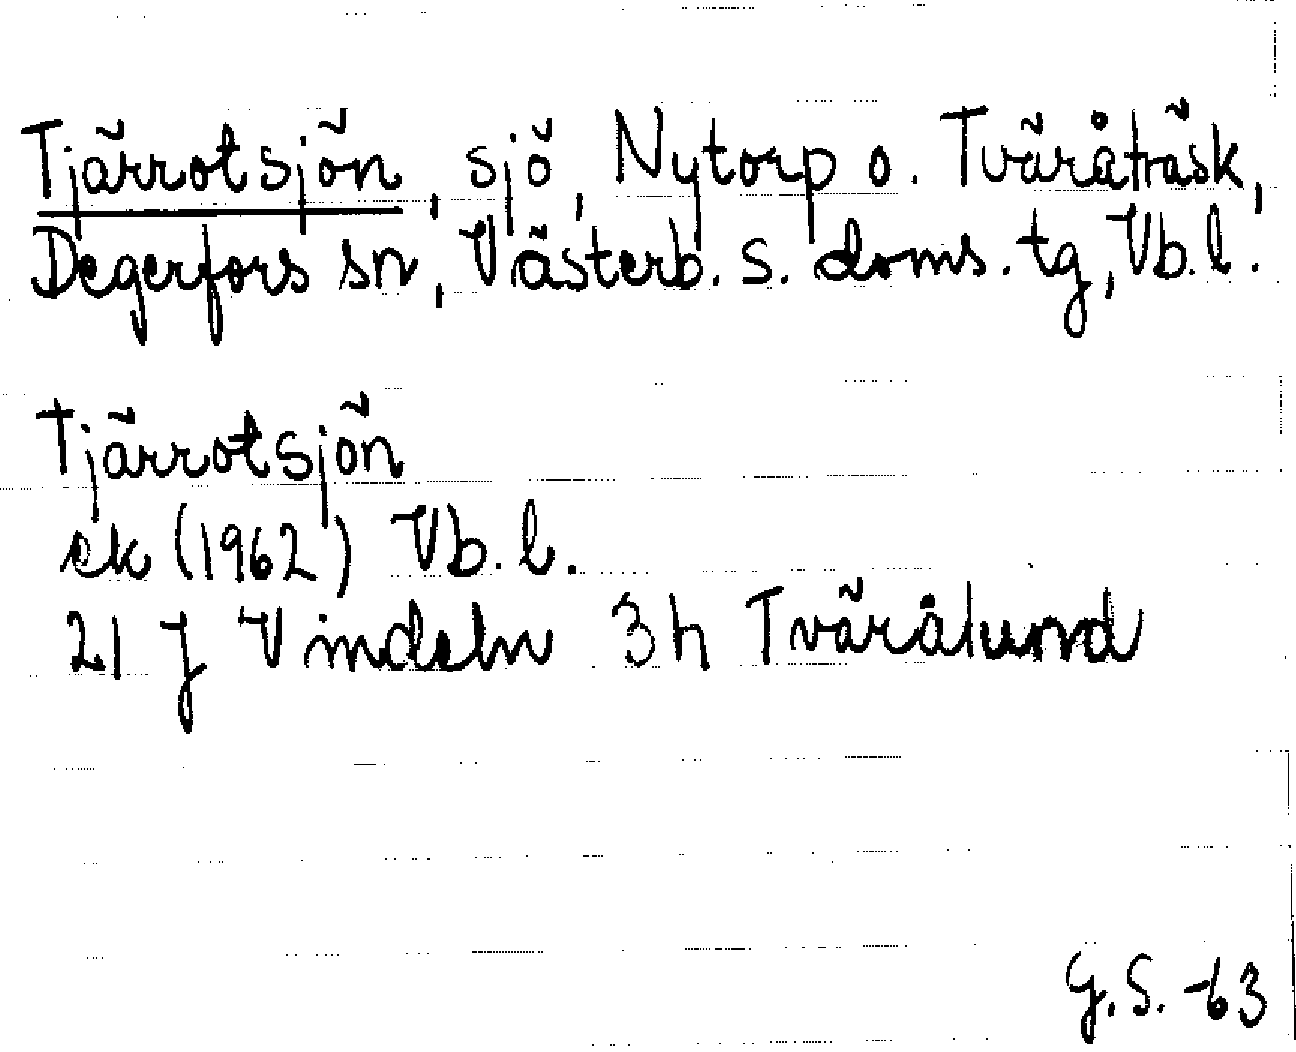 Tjärrotsjön, sjö, Nytorp o. Tväråträsk,
Degerfors sn, Västerb. s. doms. tg, Vb. l.
Tjärrotsjön
ek (1962) Vb. l.
21 J Vindeln 3h Tvärålund
G. S. -63